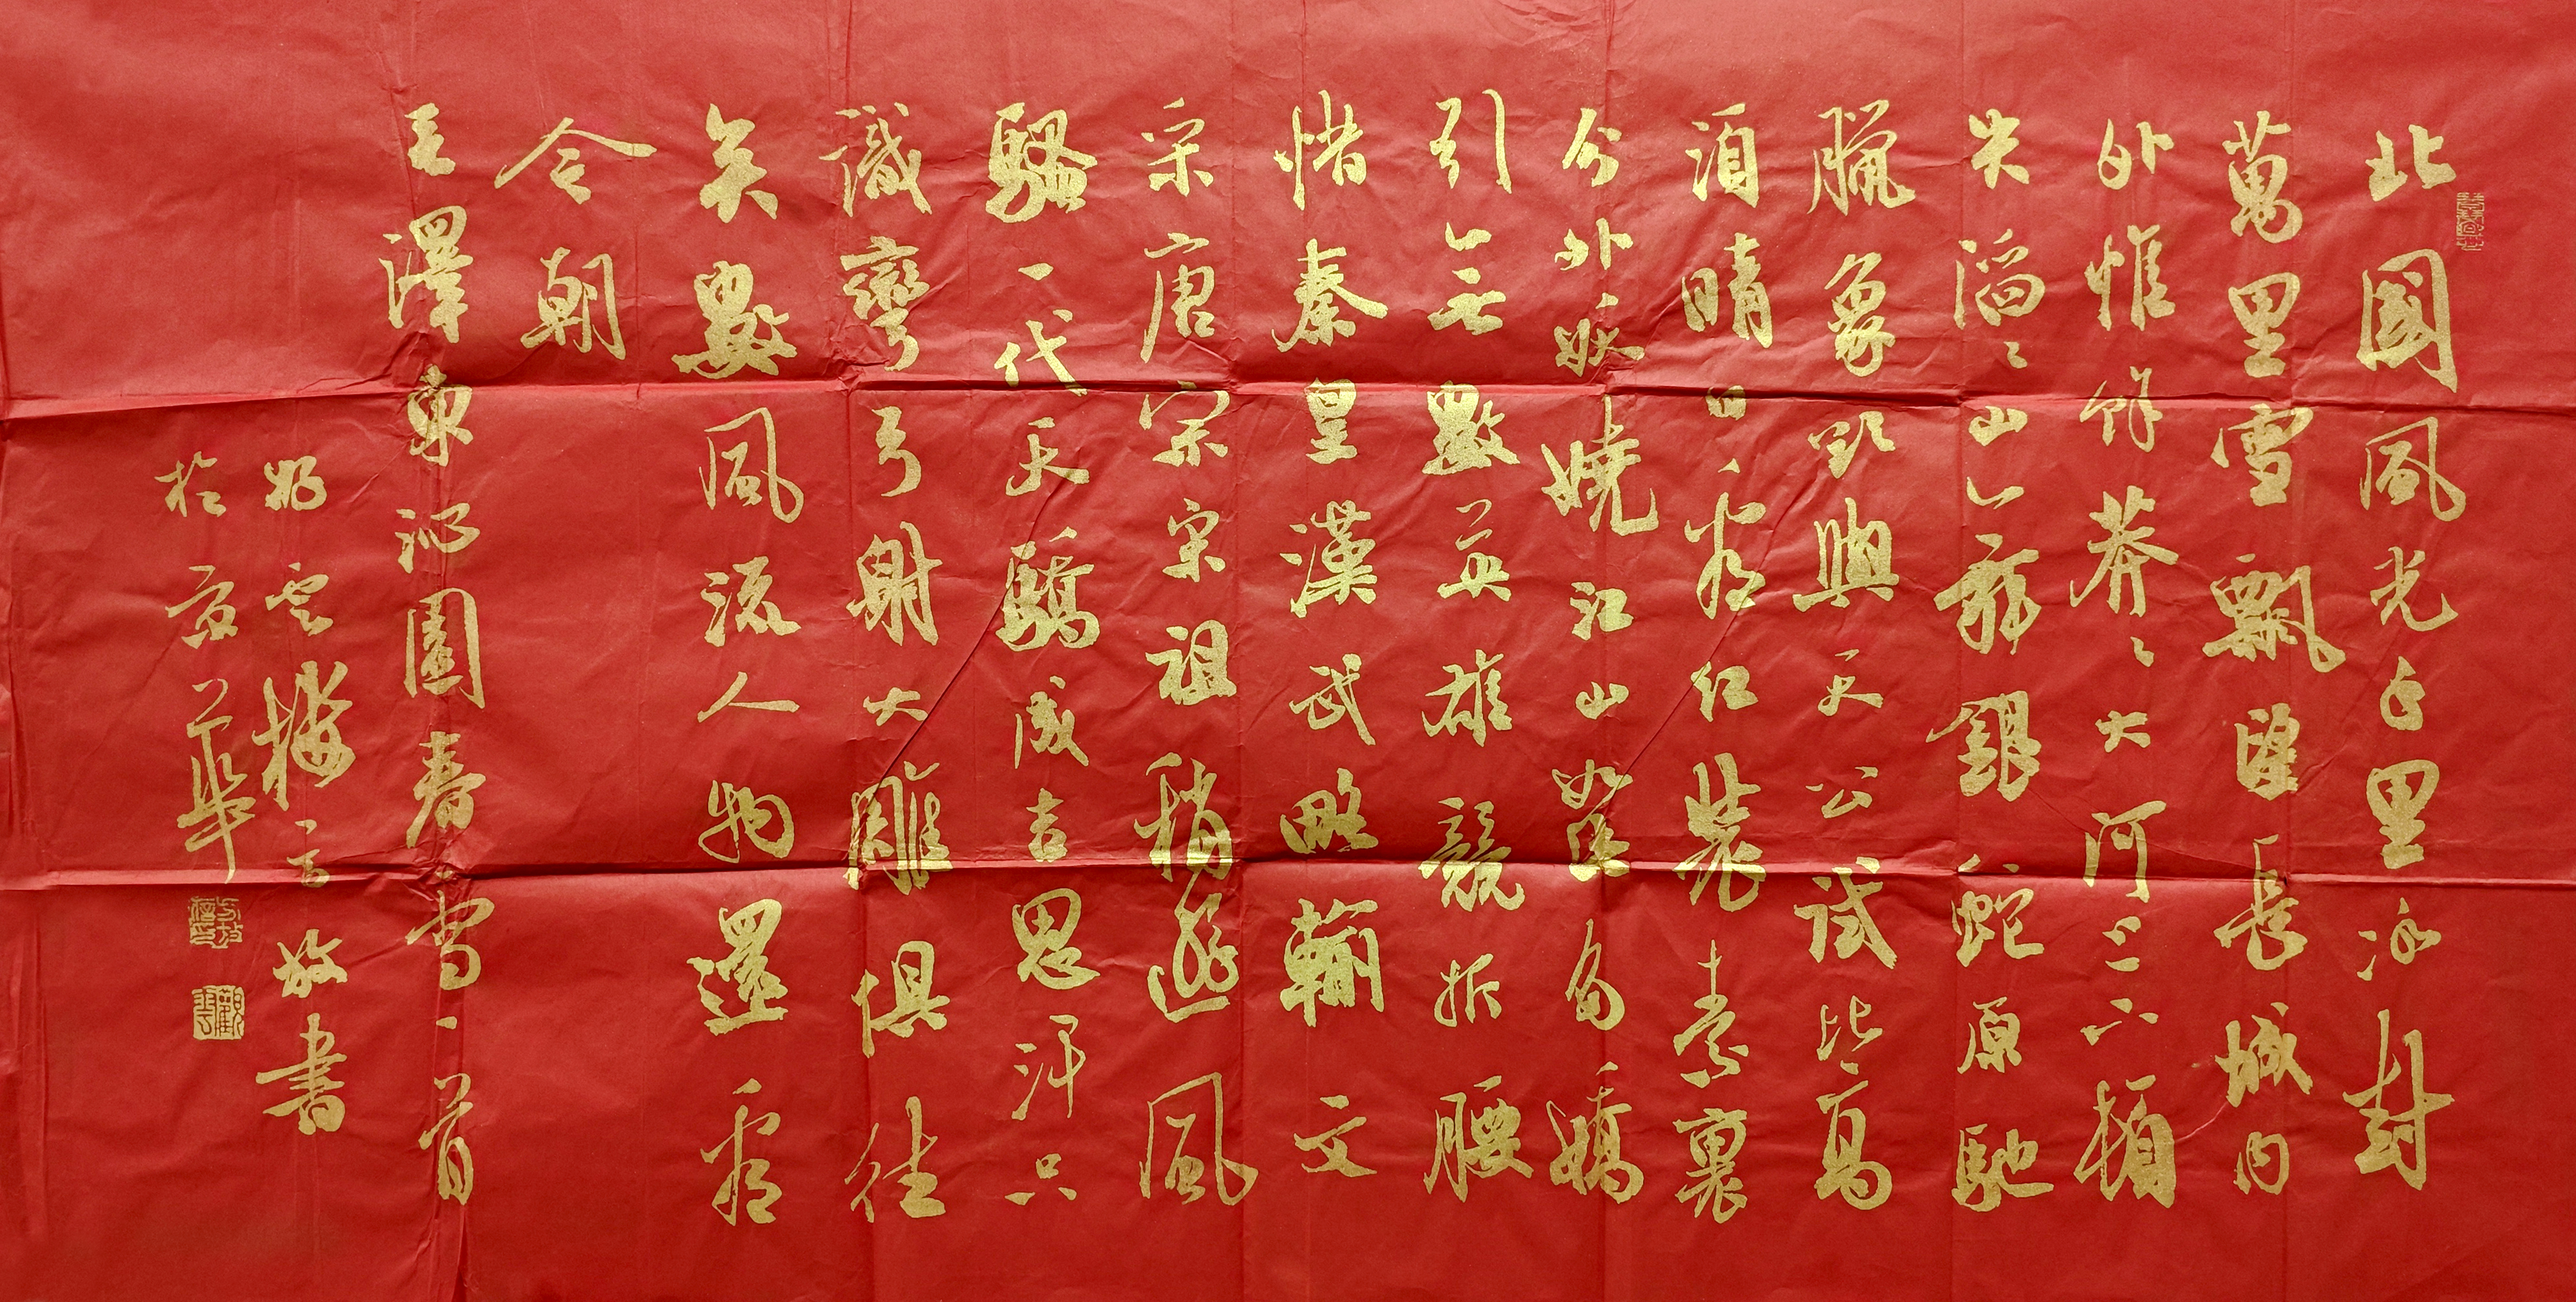 北國風光千里冰封
萬里雪飄望長城內
外惟餘莽々大河上下頓
失滔々山舞銀蛇原馳
臘象欲與天公試比高
須晴日看紅裝素裹
分外妖嬈江山如此多嬌
引無數英雄競折腰
惜秦皇漢武略輸文
采唐宗宋祖稍遜風
騷一代天驕成吉思汗只
識彎弓射大雕俱往
矣數風流人物還看
今朝
毛澤東沁園春雪一首
雲樓書
於京華